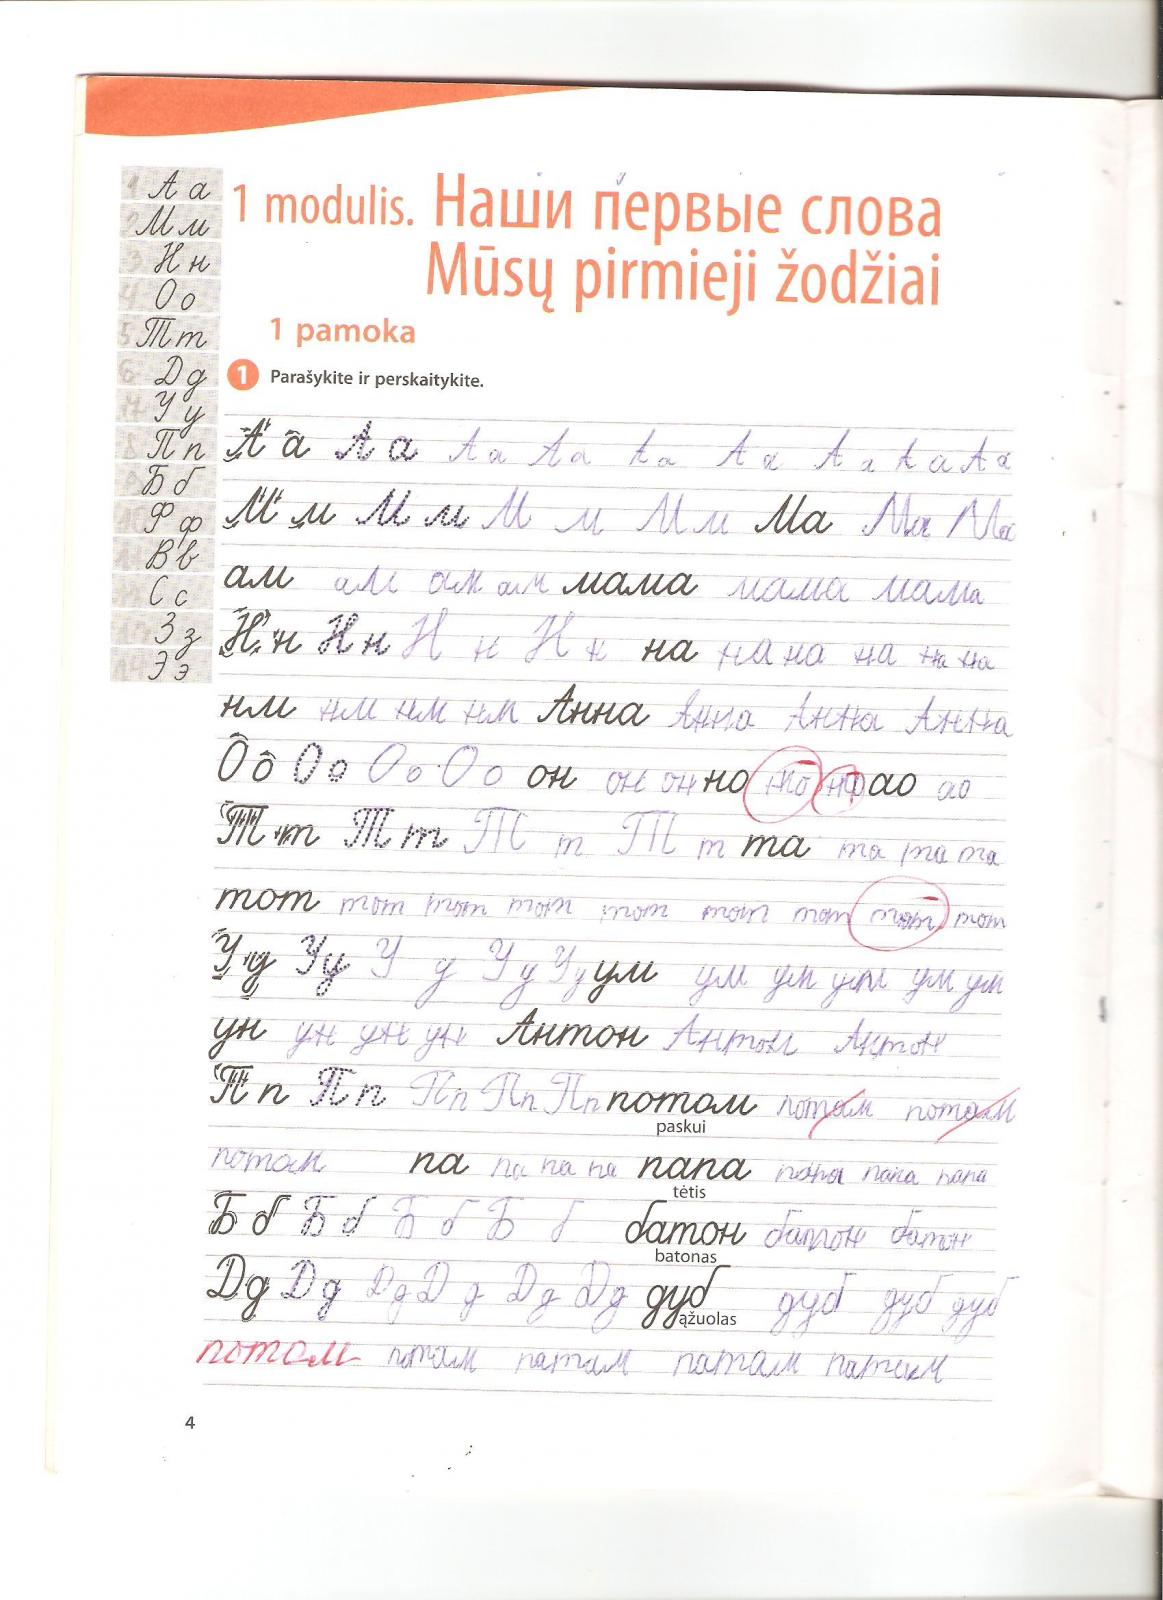 1 А а
2 М м
3 Н н
4 О о
5 Т т
6 Д д
7 У у
8 П п
9 Б б
10 Ф ф
11 В в
12 С с
13 З з
14 Э э
1 modulis. Наши первые слова
Mūsų pirmieji žodžiai
1 pamoka
1 Parašykite ir perskaitykite.
А а А а А а А а А а А а А а А а А а
М м М м М м М м Ма Ма Ма
ам ам ам ам мама мама мама
Н н Н н Н н Н н на на на на на на
нм нм нм нм Анна Анна Анна Анна
О о О о О о О о он он он но но но ао ао
Т т Т т Т т Т т та та та та
тот тот тот тот тот тот тот тот тот
У у У у У у У у У у ум ум ум ум ум ум
ун ун ун ун Антон Антон Антон
П п П п П п П п П п потом потам потам
paskui
потом па па па па папа папа папа папа
tėtis
Б б Б б Б б Б б батон батон батон
batonas
Д д Д д Д д Д д Д д Д д дуб дуб дуб дуб
ąžuolas
потом потам патам патам патам
4